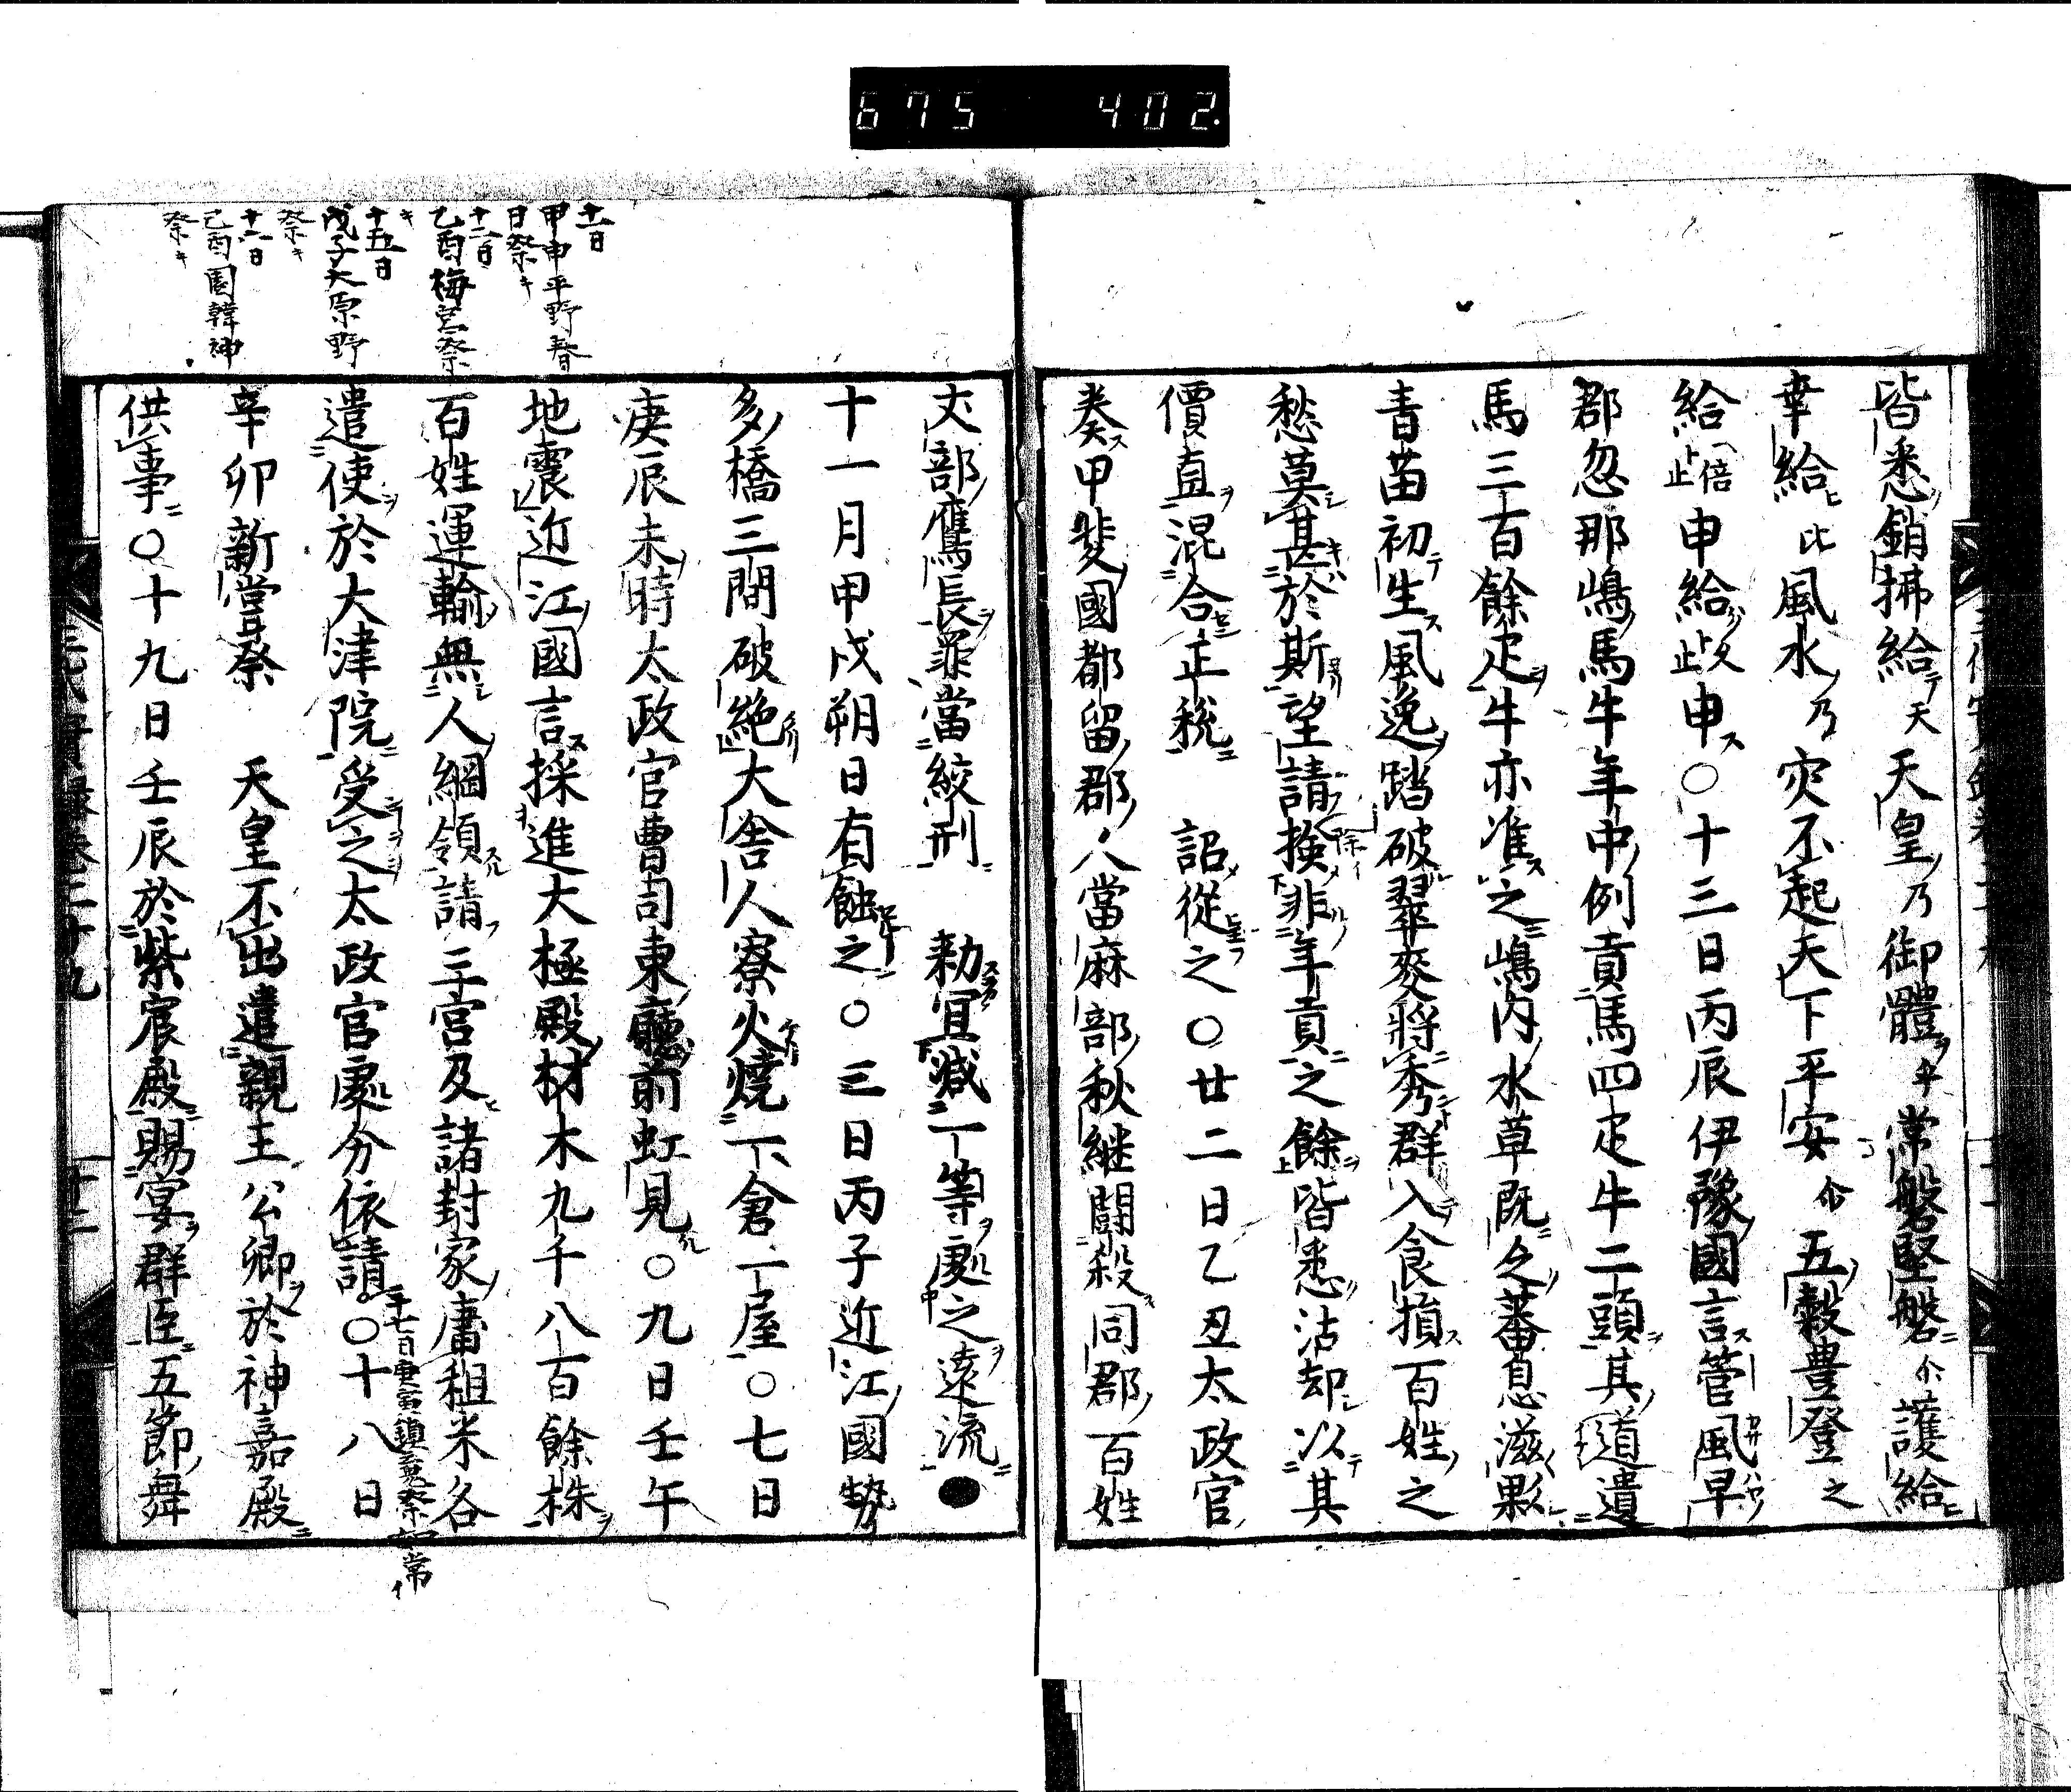 675 402.
皆悉銷拂給天天皇乃御體乎常磐堅磐尒護給
幸給比風水乃灾不起天下平安尒五穀豊登之
給倍止申給止申○十三日丙辰伊豫國言管風早
郡忽那嶋馬牛年中例貢馬四疋牛二頭其遺
馬三百餘疋牛亦准之嶋内水草既乏蕃息滋夥
青苗初生風逸踏破翠麥將秀群入食損百姓之
愁莫甚於斯望請揀非年貢之餘皆悉沽却以其
價直混合正税 詔從之○廿二日乙丑太政官
奏甲斐國都留郡人當麻部秋継闘殺同郡百姓
丈部鷹長罪當絞刑 勅冝减一等處之遠流●
十一月甲戌朔日有蝕之○三日丙子近江國勢
多橋三間破絶大舎人寮火焼下倉一屋○七日
庚辰未時太政官曹司東廳前虹見○九日壬午
地震近江國言採進大極殿材木九千八百餘株
百姓運輸無人綱領請三宮及諸封家庸租米各
遣使於大津院受之太政官處分依請○十八日
十七日庚寅鎮魂祭如常イ
辛卯新甞祭 天皇不出遣親王公卿於神嘉殿
供事○十九日壬辰於紫宸殿賜宴群臣五節舞
十一日
甲申平野春
日祭キ
十二日
乙酉梅宮祭
キ
十五日
戊子大原野
祭キ
十六日
己酉園韓神
祭キ
三代實録卷二十九
十二